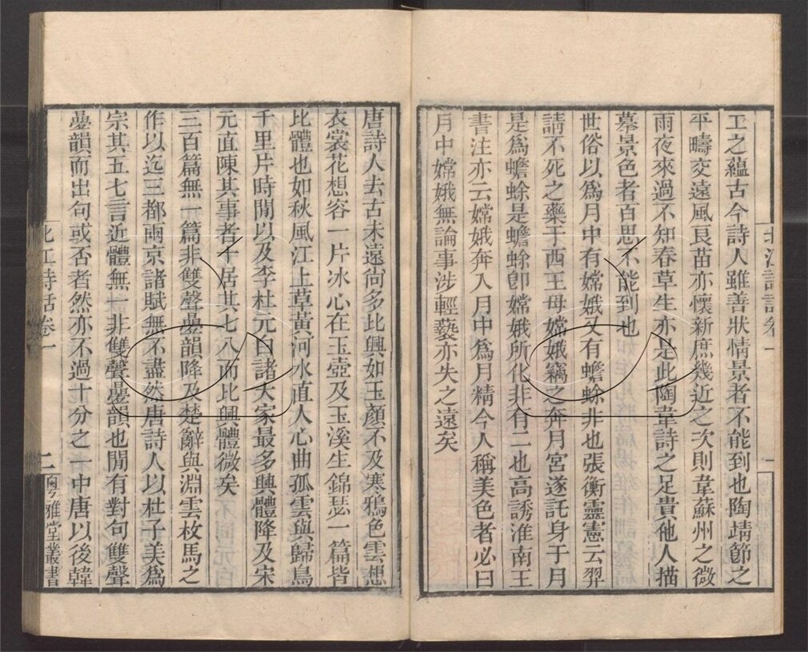 工之蘊古今詩人雖善狀情景者不能到也陶靖節之
平疇交遠風良苗亦懷新庶幾近之次則韋蘇州之微
雨夜來過不知春草生亦是此陶韋詩之足貴他人描
摹景色者百思不能到也
世俗以爲月中有嫦娥又有蟾蜍非也張衡靈憲云羿
請不死之藥于西王母嫦娥竊之奔月宮遂託身于月
是爲蟾蜍是蟾蜍卽嫦娥所化非有二也高誘淮南王
書注亦云嫦娥奔入月中爲月精今人稱美色者必曰
月中嫦娥無論事涉輕褻亦失之遠矣
唐詩人去古未遠尙多比興如玉顏不及寒鴉色雲想
衣裳花想容一片冰心在玉壺及玉溪生錦瑟一篇皆
比體也如秋風江上草黃河水直人心曲孤雲與歸鳥
千里片時閒以及李杜元白諸大家最多興體降及宋
元直陳其事者十居其七八而比興體微矣
三百篇無一篇非雙聲疊韻降及楚辭與淵雲枚馬之
作以迄三都兩京諸賦無不盡然唐詩人以杜子美爲
宗其五七言近體無一非雙聲疊韻也閒有對句雙聲
疊韻而出句或否者然亦不過十分之一中唐以後韓
北江詩話卷一
二
粵雅堂叢書